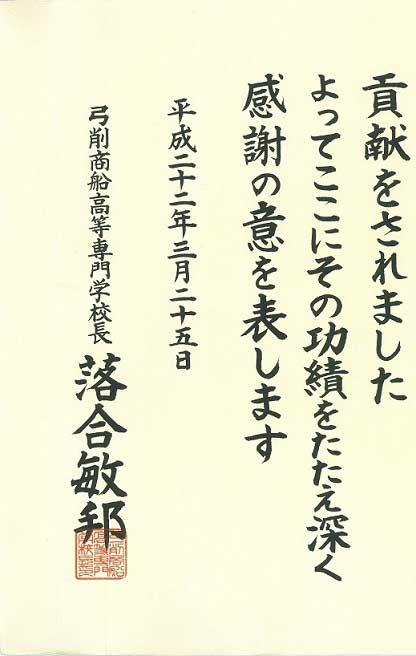 貢献をされました
よってここにその功績をたたえ深く
感謝の意を表します
平成二十二年三月二十五日
弓削商船高等専門学校長
落合敏邦